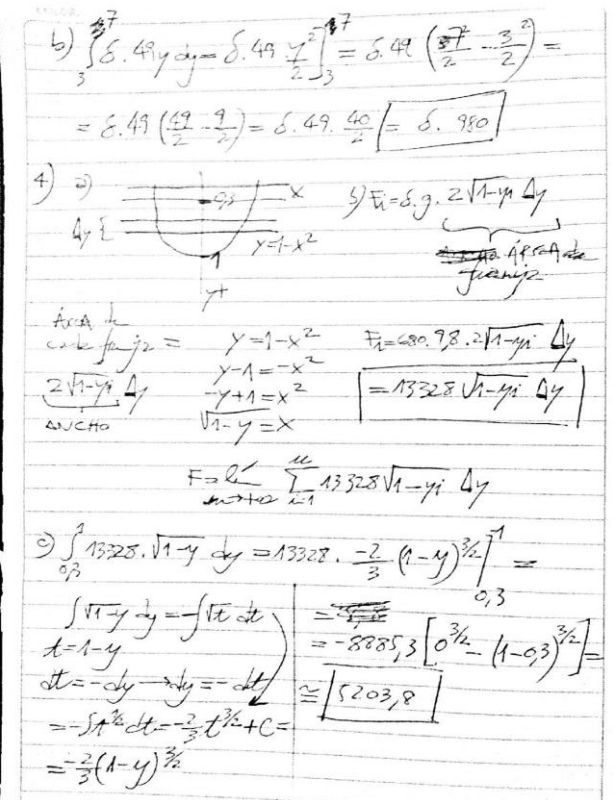 b) ∫₃⁷ δ.49y dy = δ.49 y²/2 ]₃⁷ = δ.49 (7²/2 - 3²/2) =
= δ.49 (49/2 - 9/2) = δ.49. 40/2 = δ. 980
4) a)
0,3 x
Δy {
y=1-x²
1
y+
b) Fi=δ.g. 2√(1-yi) Δy
ÁREA de
franja
Área de
cada franja =
2√(1-yi) Δy
ANCHO
y=1-x²
y-1=-x²
-y+1=x²
√(1-y)=x
Fi=680.9,8.2√(1-yi) Δy
=13328 √(1-yi) Δy
F= lím n→+∞ ∑ᵢ₌₁ⁿ 13328√(1-yi) Δy
c) ∫₀,₃¹ 13328.√(1-y) dy = 13328. -2/3 (1-y)^3/2 |₀,₃¹ =
∫√(1-y) dy = -∫√t dt
t=1-y
dt=-dy → dy=-dt
= -∫t^1/2 dt = -2/3 t^3/2 + C =
= -2/3 (1-y)^3/2
= -8885,3 [0^3/2 - (1-0,3)^3/2] =
≅ 5203,8